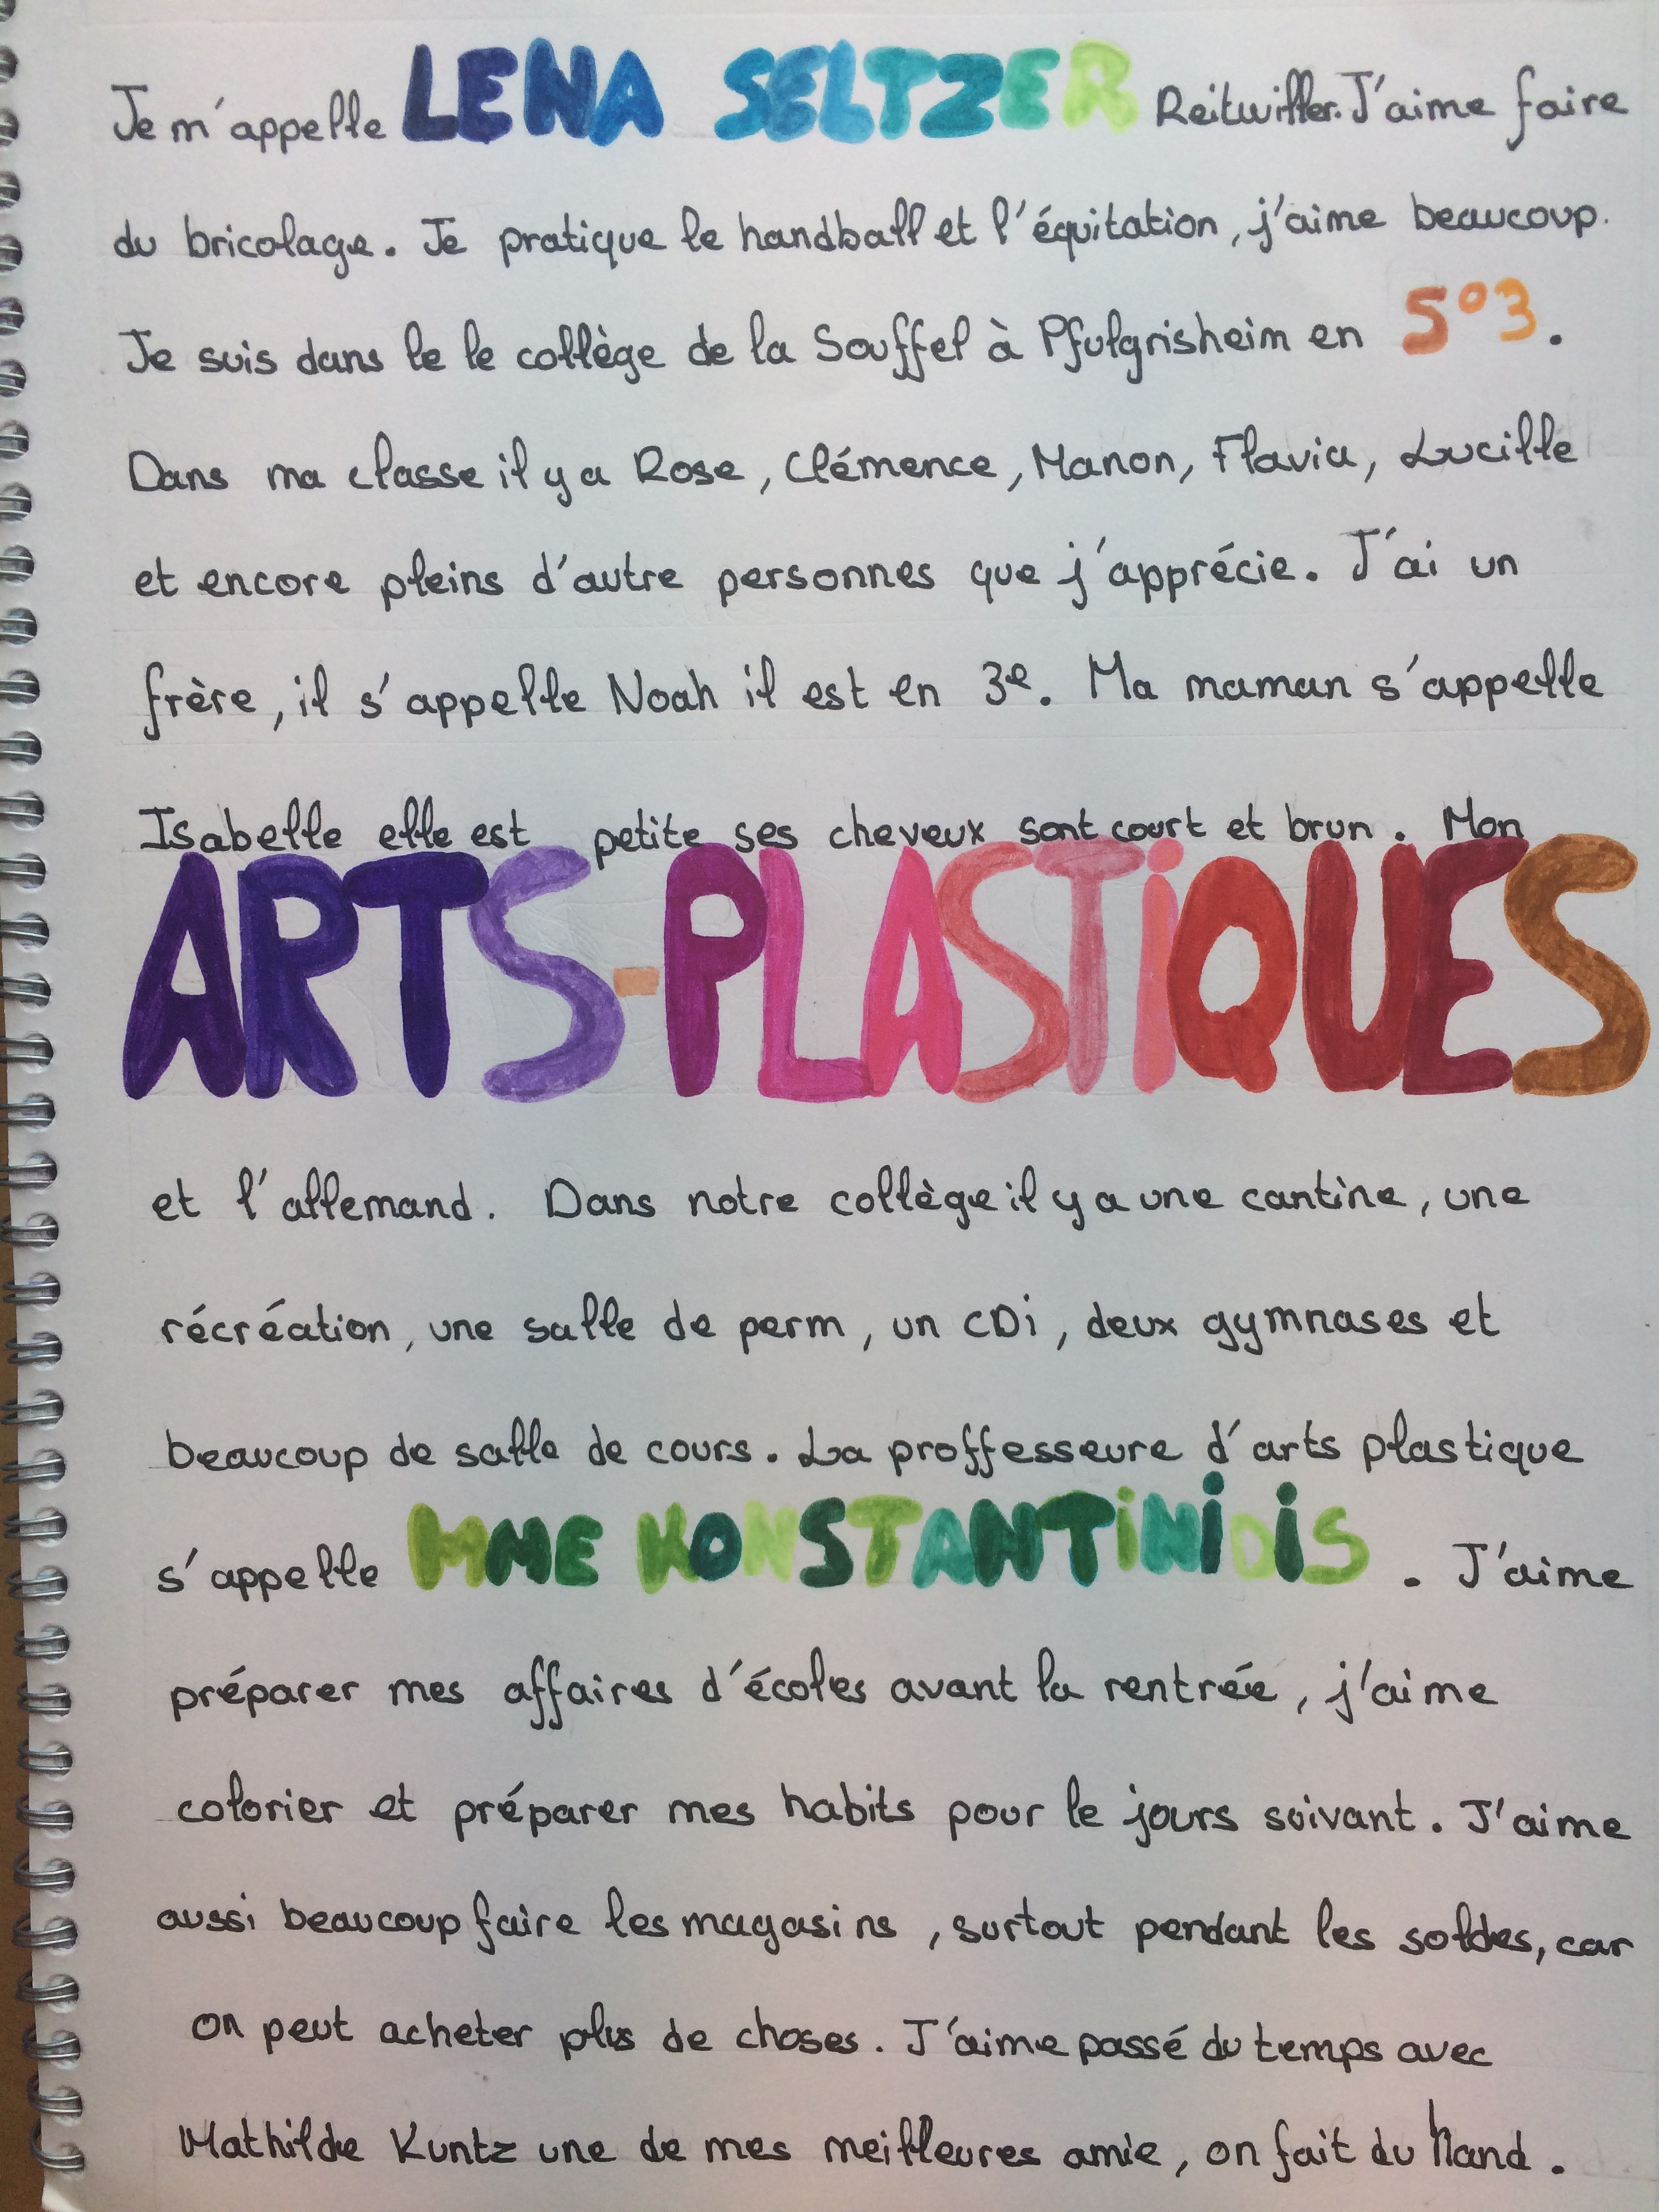 Je m'appelle LENA SELTZER Reitwiller. J'aime faire
du bricolage. Je pratique le handball et l'équitation, j'aime beaucoup.
Je suis dans le le collège de la Souffel à Pfulgrisheim en 5°3.
Dans ma classe il y a Rose, Clémence, Manon, Flavia, Lucille
et encore pleins d'autre personnes que j'apprécie. J'ai un
frère, il s'appelle Noah il est en 3e. Ma maman s'appelle
Isabelle elle est petite ses cheveux sont court et brun. Mon
ARTS-PLASTiQUES
et l'allemand. Dans notre collège il y a une cantine, une
récréation, une salle de perm, un CDi, deux gymnases et
beaucoup de salle de cours. La proffesseure d'arts plastique
s'appelle MME KONSTANTiNiDiS. J'aime
préparer mes affaires d'écoles avant la rentrée, j'aime
colorier et préparer mes habits pour le jours suivant. J'aime
aussi beaucoup faire les magasins, surtout pendant les soldes, car
on peut acheter plus de choses. J'aime passé du temps avec
Mathilde Kuntz une de mes meilleures amie, on fait du hand.